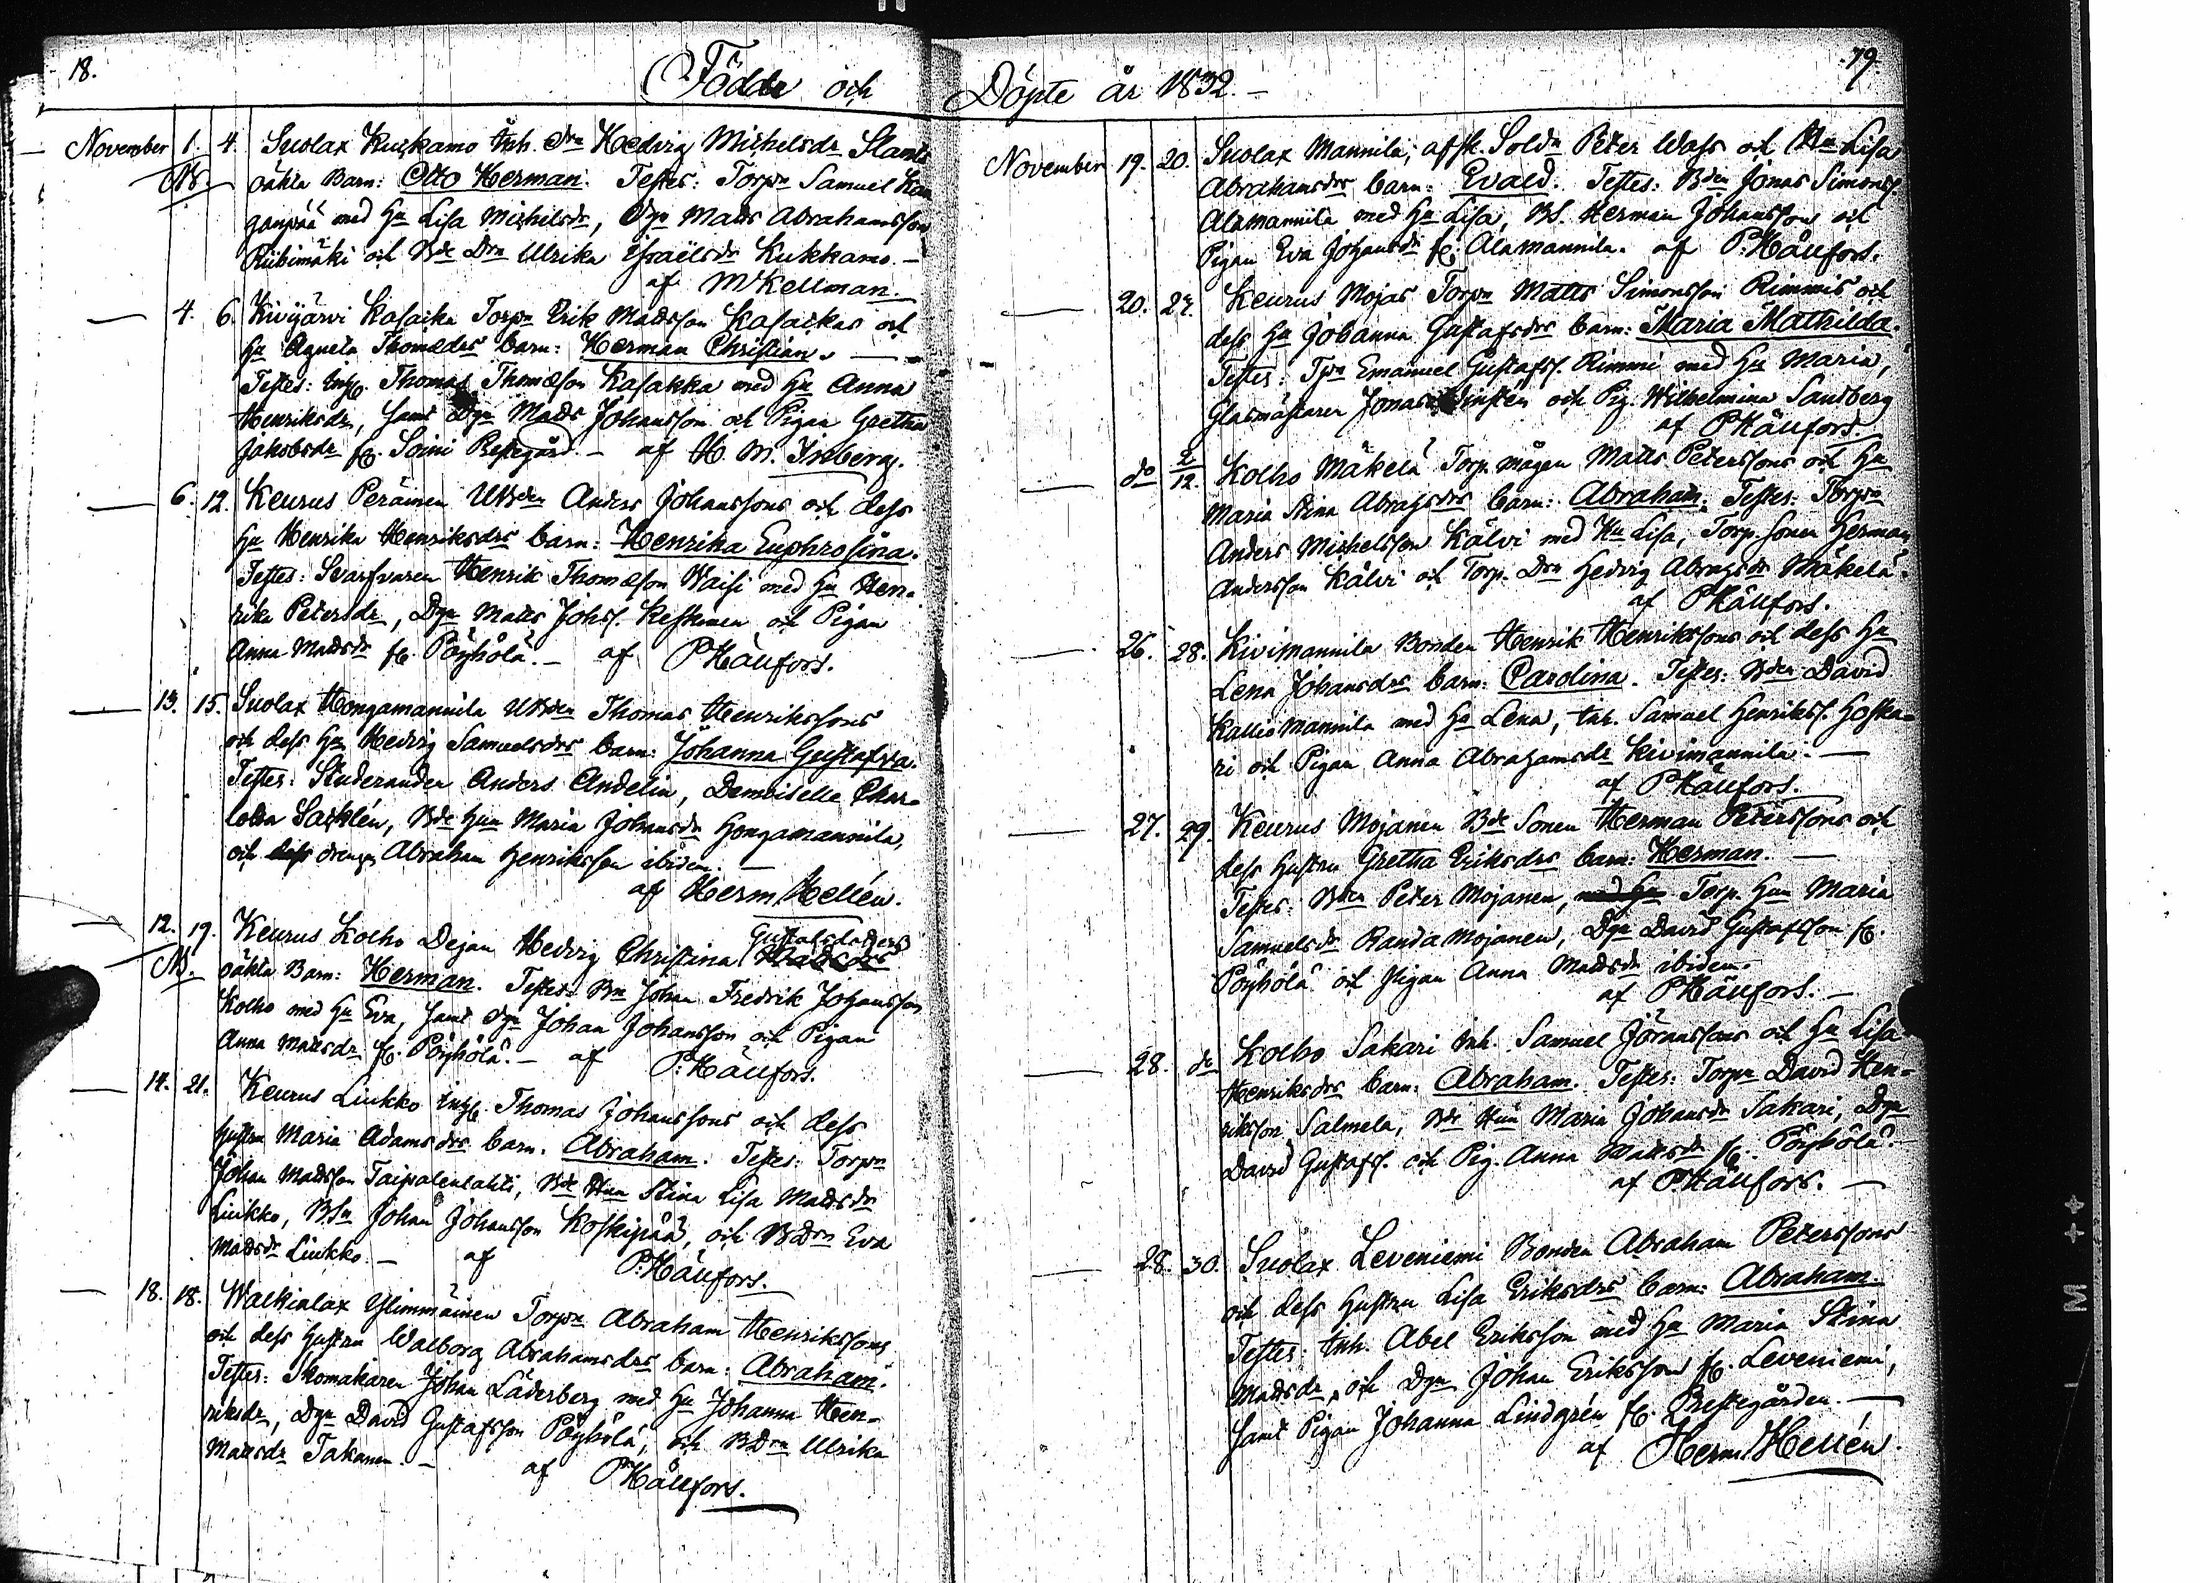 18.
Födde och
November 1. 4. Suolax Kuckamo Inh. Drn Hedvig Michelsdr
NB. oäkta Barn: Otto Herman. Testes: Torpn Samuel Kan
ganpää med Hu Lisa Michelsdr, Dgn Matts Abrahamsson
Riihimäki och Bde Drn Ulrika Israëlsdr Kukkamo. —
af M Kellman.
— 4. 6. Kivijärvi Kasacka Torpn Erik Mattsson Kasackas och
Hu Agneta Thomædrs barn: Herman Christian. —
Testes: Inhs. Thomas Thomæson Kasakka med Hu Anna
Henriksdr, samt Dgn Matts Johansson och Pigan Gretha
Jakobsdr fr. Soini Prestegård. — af H. M.
— 6. 12. Keurus Peräinen Utbden Anders Johanssons och dess
Hu Henrika Henriksdrs barn: Henrika Euphrosina.
Testes: Svarfvaren Henrik Thomæson Waisi med Hu Hen-
rika Petersdr, Dgn Matts Johss. Keskinen och Pigan
Anna Mattsdr fr. Pöyhölä. — af P Hällfors.
— 13. 15. Suolax Hongamannila Utbden Thomas Henrikssons
och dess Hu Hedvig Samuelsdrs barn: Johanna Gustafva.
Testes: Studeranden Anders Andelin, Demoiselle Char-
lotta Sacklén, Bde Hun Maria Johansdr Hongamannila,
och dess drengen Abraham Henriksson ibidem. —
af Herm. Hellén.
Gustafsdotters
12. 19. Keurus Kolho Dejan Hedvig Christina Mattsdrs
NB. oäkta Barn: Herman. Testes: Bn Johan Fredrik Johansson
Kolho med Hu Eva, samt Dgn Johan Johansson och Pigan
Anna Mattsdr fr. Pöyhölä. — af P. Hällfors.
— 14. 21. Keurus Liukko Inhs. Thomas Johanssons och dess
hustru Maria Adamsdrs barn. Abraham. Testes: Torpn
Johan Mattsson Taipalenlahti, Bde Hun Stina Lisa Mattsdr
Liukko, BSn Johan Johansson Koskipää, och BDrn Eva
Mattsdr Liukko. — af P. Hällfors.
— 18. 18. Walkialax Ylimmäinen Torpn Abraham Henrikssons
och dess hustru Walborg Abrahamsdrs barn: Abraham.
Testes: Skomakaren Johan Läderberg med Hu Johanna Hen-
riksdr, Dgn David Gustafsson Pöyhölä, och BDrn Ulrika
Mattsdr Takanen. — af P Hällfors.
19.
Döpte år 1832. —
November 19. 20. Suolax Mannila, afsk. Soldn Peter Wass och Hu Lisa
Abrahamsdrs barn: Evald. Testes: Bden Jonas Simonss.
Alamannila med Hu Lisa, BS. Herman Johansson och
Pigan Eva Johansdr fr. Alamannila. af P. Hällfors.
— 20. 27. Keurus Mojas Torpn Matts Simonsson Rimmis och
dess Hu Johanna Gustafsdrs barn: Maria Mathilda.
Testes: Tpn Emanuel Gustafss. Rimmi med Hu Maria,
Glasmästaren Jonas och Pig. Wilhelmina Sandberg
af P Hällfors
— do 2/12. Kolho Mäkelä Torp. mågen Matts Peterssons och Hu
Maria Stina Abrahsdrs barn: Abraham. Testes: Torpn
Anders Michelsson Kälvi med Hu Lisa, Torp. sonen Herman
Andersson Kälvi och Torp. Drn Hedvig Abrahsdr Mäkelä.
af P Hällfors.
— 26. 28. Kivimannila Bonden Henrik Henrikssons och dess Hu
Lena Johansdrs barn: Carolina. Testes: Bden David
Kalliomannila med Hu Lena, Inh. Samuel Henrikss. Hoska-
ri och Pigan Anna Abrahamsdr Kivimannila. —
af P Hällfors.
— 27. 29. Keurus Mojanen Bde Sonen Herman Peterssons och
dess hustru Gretha Eriksdrs barn: Herman. —
Testes: Bden Peter Mojanen, med Hu Torp. Hun Maria
Samuelsdr Randa Mojanen, Dgn David Gustafsson fr.
Pöyhölä och Pigan Anna Mattsdr ibidem.
af P Hällfors. —
— 28. do Kolho Sakari Inh. Samuel Göranssons och Hu Lisa
Henriksdrs barn: Abraham. Testes: Torpn David Hen-
riksson Salmela, Bde Hun Maria Johansdr Sakari, Dgn
David Gustafss. och Pig. Anna Mattsdr fr. Pöyhölä. —
af P. Hällfors. —
— 28. 30. Suolax Leveniemi Bonden Abraham Peterssons
och dess hustru Lisa Eriksdrs barn: Abraham.
Testes: Inh. Abel Eriksson med Hu Maria Stina
Mattsdr, och Dgn Johan Eriksson fr. Leveniemi,
samt Pigan Johanna Lindgrén fr. Prestegården. —
af Herm. Hellén.
M